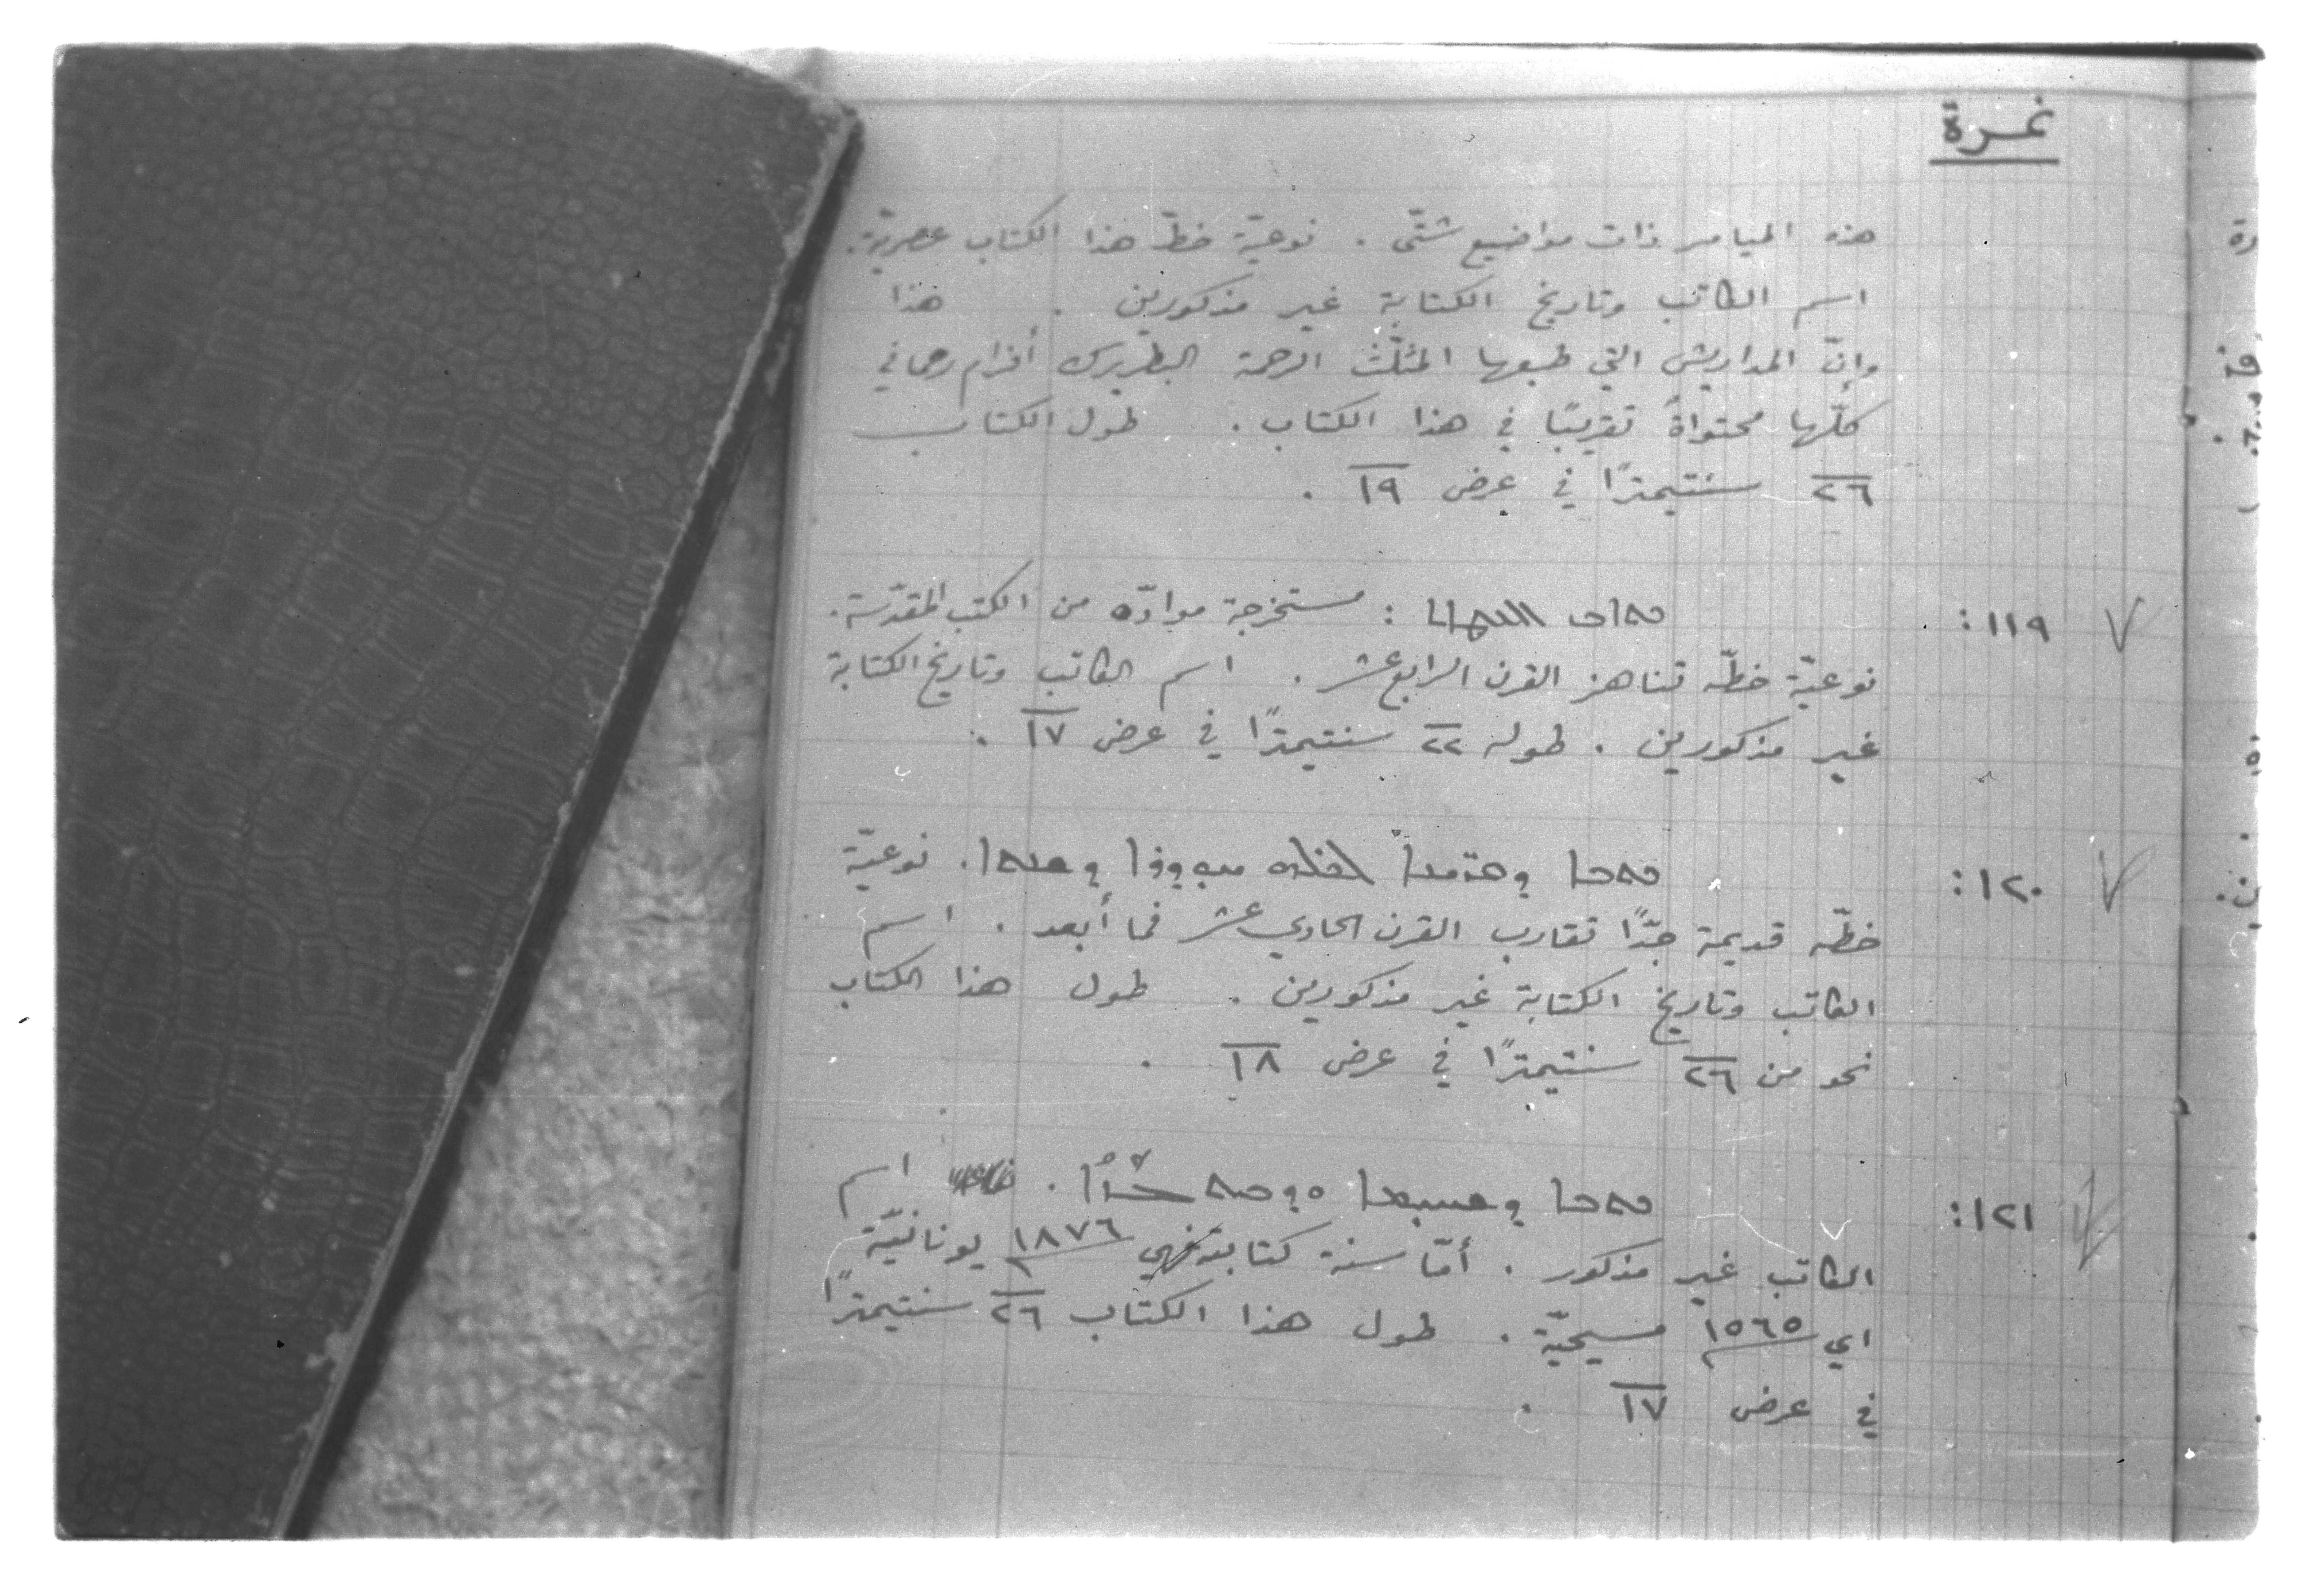 نمرة
هذه الميامر ذات مواضيع شتّى . نوعيّة خطّ هذا الكتاب عصريّة.
اسم الكاتب وتاريخ الكتابة غير مذكورين . هذا
وإنّ المداريش التي طبعها المثلّث الرحمة البطريرك أفرام رحماني
كلّها محتواة تقريبًا في هذا الكتاب . طول الكتاب
٢٦ سنتيمترًا في عرض ١٩ .
١١٩: : مستخرجة موادّه من الكتب المقدّسة.
نوعيّة خطّه تناهز القرن الرابع عشر . اسم الكاتب وتاريخ الكتابة
غير مذكورين . طوله ٢٢ سنتيمترًا في عرض ١٧ .
١٢٠: ܟܬܒܐ . نوعيّة
خطّه قديمة جدًّا تقارب القرن الحادي عشر فما أبعد . اسم
الكاتب وتاريخ الكتابة غير مذكورين . طول هذا الكتاب
نحو من ٢٦ سنتيمترًا في عرض ١٨ .
١٢١: ܟܬܒܐ . اسم
الكاتب غير مذكور . أمّا سنة كتابته فهي ١٨٧٦ يونانيّة
اي ١٥٦٥ مسيحيّة . طول هذا الكتاب ٢٦ سنتيمترًا
في عرض ١٧ .